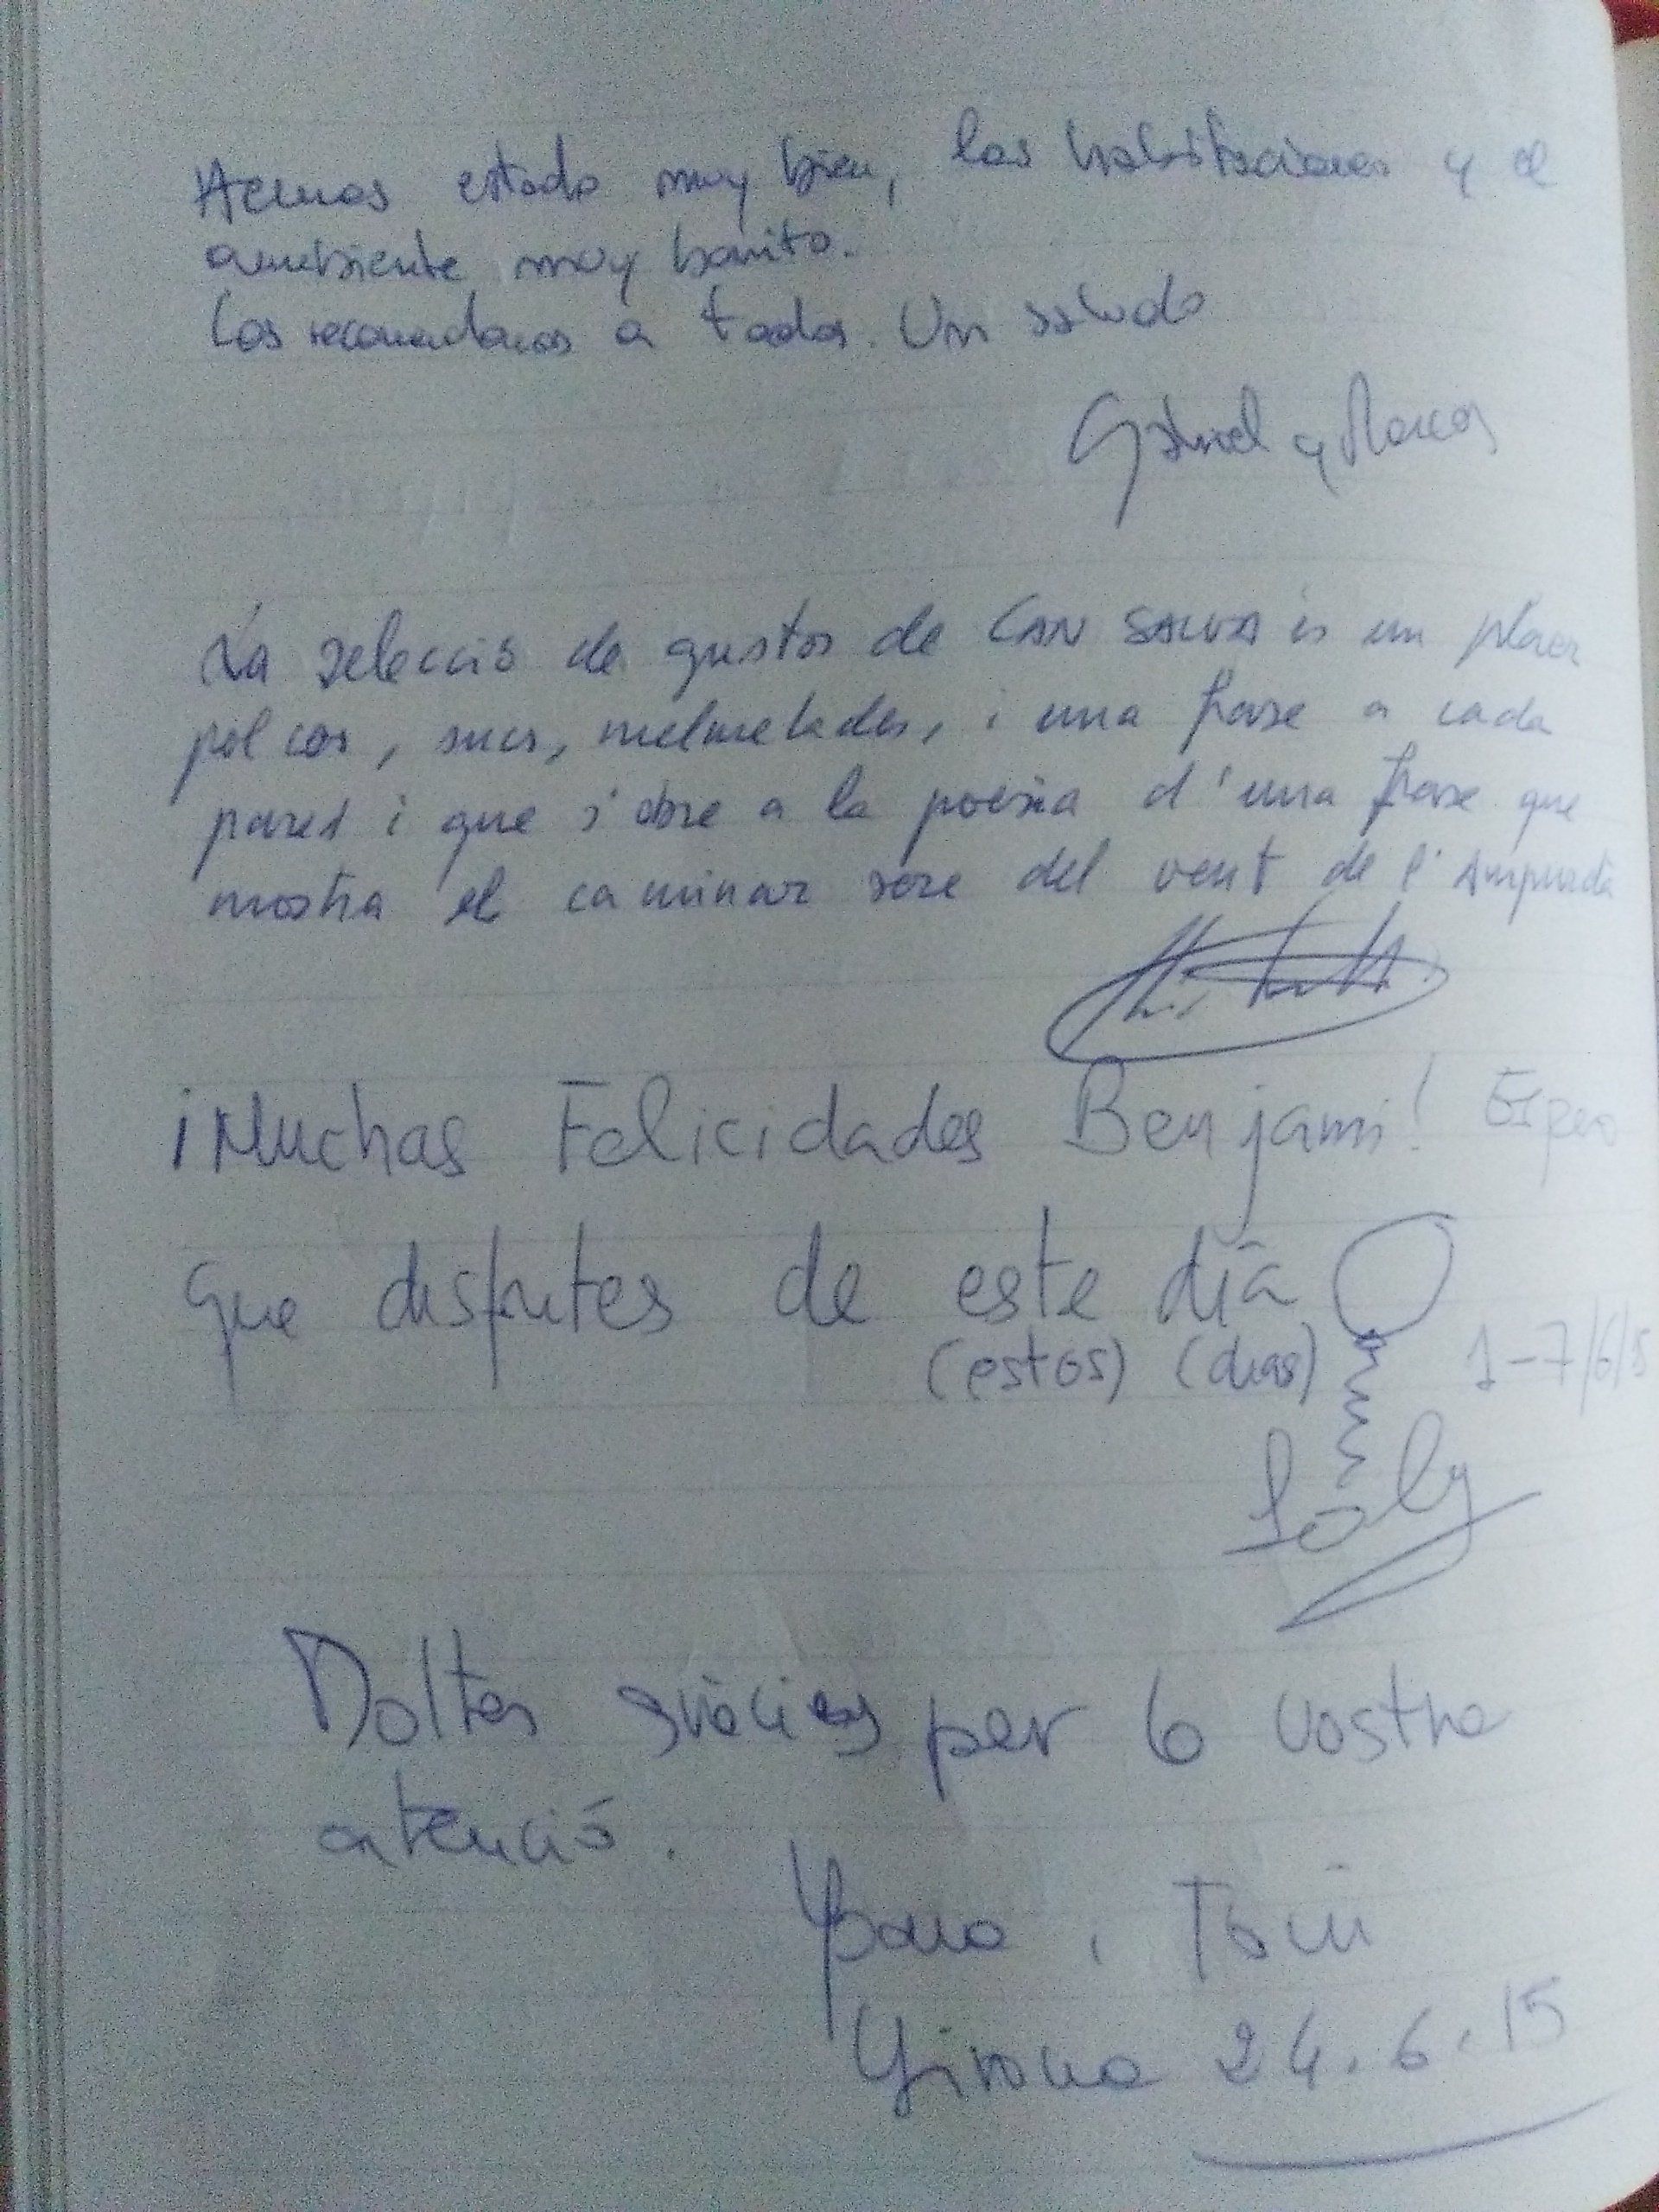 Hemos estado muy bien, las habitaciones y el
ambiente muy bonito.
Los recomendamos a todos. Un saludo
Gabriel y Marcos
La selecció de gustos de CAN SALVA és un plaer
pol cos, sucs, melmelades, i una frase a cada
paret i que s'obre a la poesia d'una frase que
mostra el caminar sere del vent de l'Ampurdà
¡Muchas Felicidades Benjami! Espero
que disfrutes de este día
(estos) (dias) 1-7/6/15
Loly
Moltes gràcies per la vostra
atenció.
i Toni
Girona 24.6.15